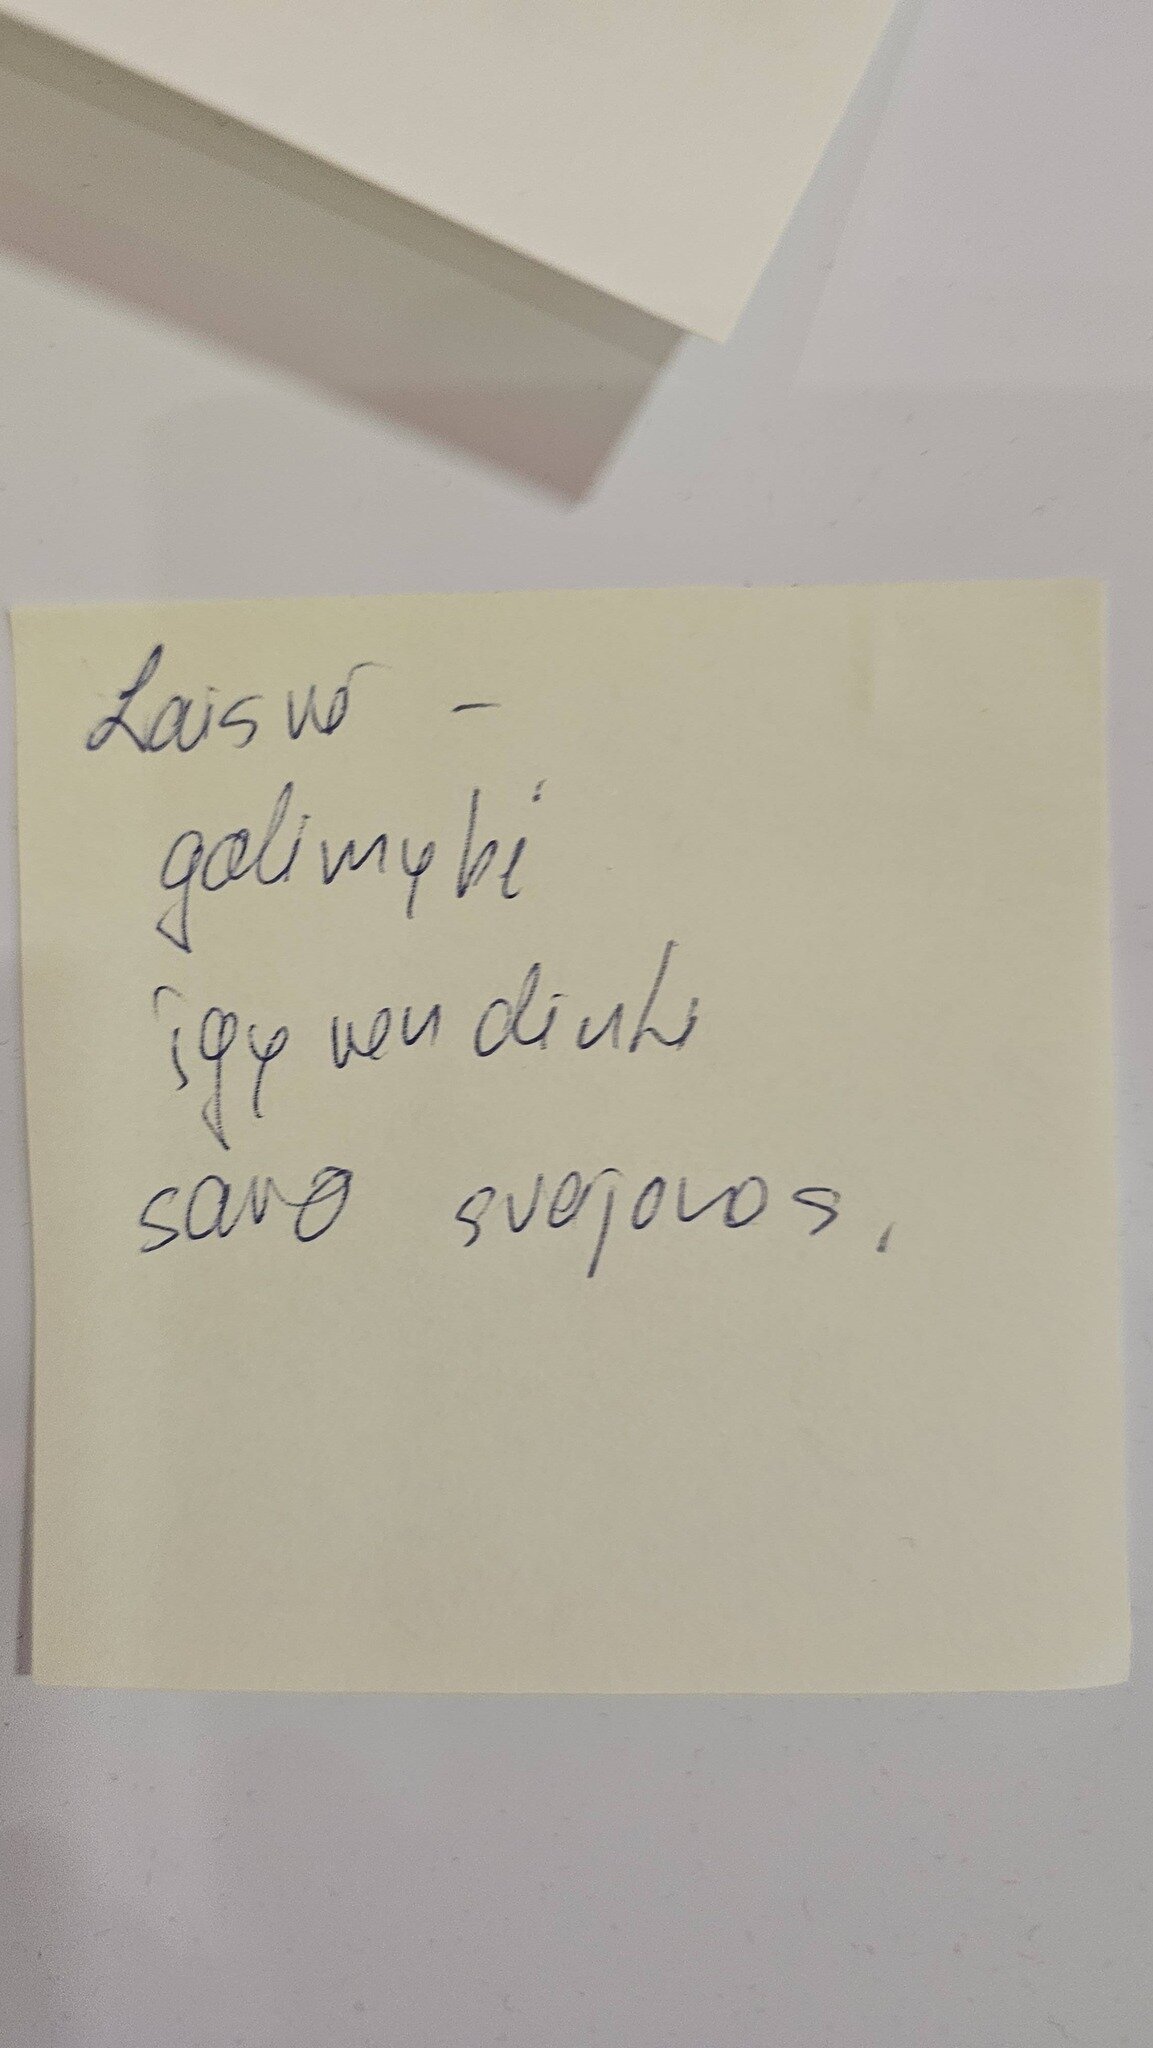 Laisvė -
galimybė
įgyvendinti
savo svajonos.